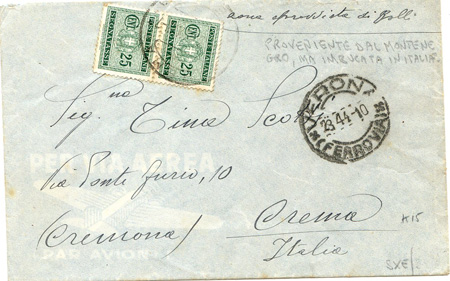 zona sprovvista di Bolli
PROVENIENTE DAL MONTENE
GRO, MA IMBUCATA IN ITALIA.
SEGNATASSE
CENT 25
SEGNATASSE
CENT 25
VERONA
23.4.41-10
(FERROVIA)
Sig.na Tina
PER VIA AEREA
Via Ponte Furio, 10
(Cremona) Crema
K15
Italia
PAR AVION
SXE/